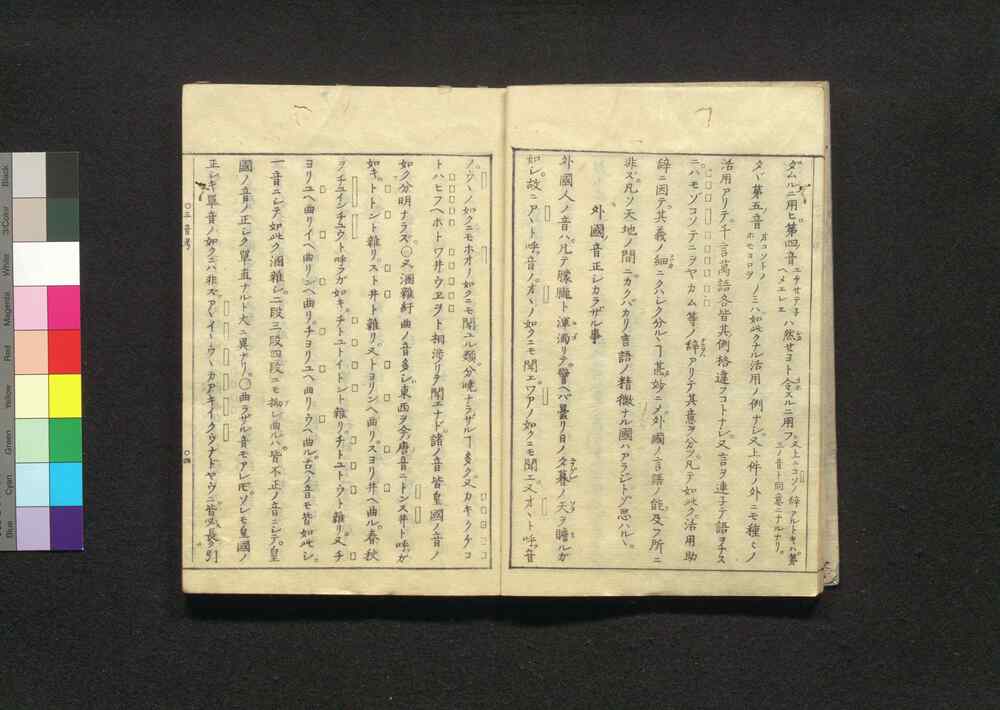 ダムルニ用ヒ。第四音 エケセテ子ヘメエレヱ ハ然セヨト令スルニ用フ。又上ニコソノ辭アルトキハ第三ノ音ト同意ニナルナリ。
タヾ第五音 オコソトノホモヨロヲ ノミハ如此クナル活用ノ例ナシ。又上件ノ外ニモ種々ノ
活用アリテ。千言萬語各皆其例格違フコトナシ。又言ヲ連子テ語ヲナス
ニ。ハモゾコソテニヲヤカム等ノ辭アリテ其意ヲ分ツ。凡テ如此ク活用助
辭ニ因テ。其義ノ細ニクハシク分ルヽヿ甚妙ニメ外國ノ言語ノ能及フ所ニ
非ズ。凡ソ天地ノ間ニカクバカリ言語ノ精微ナル國ハアラジトゾ思ハルヽ。
外國ノ音正シカラザル事
外國人ノ音ハ。凡テ朦朧ト渾濁リテ。譬ヘバ曇リ日ノ夕暮ノ天ヲ瞻ルガ
如シ。故ニアヽト呼音ノ。オヽノ如クニモ聞エワアノ如クニモ聞エ。又オヽト呼音
ノ。ウヽノ如クニモホオノ如クニモ聞ユル類。分曉ナラザルヿ多ク。又カキクケコ
トハヒフヘホトワ井ウヱヲト相渉リテ聞エナド。諸ノ音皆皇國ノ音ノ
如ク分明ナラズ。〇又溷雜紆曲ノ音多シ。東西ヲ今ノ唐音ニトンスヰト呼ガ
如キ。トトント雜リ。スト井ト雜リ。又トヨリンヘ曲リ。スヨリ井ヘ曲ル。春秋
ヲチユインチユウト呼ラガ如キ。チトユトイトント雜リ。チトユトウト雜リ。又チ
ヨリユヘ曲リイヘ曲リンヘ曲リ。チヨリユヘ曲リウヘ曲ル。古ヘノ音モ皆如此シ。
一音ニシテ。如此ク溷雜シ。二段三段四段ニモ拗レ曲ルハ。皆不正ノ音ニシテ。皇
國ノ音ノ正シク單直ナルト大ニ異ナリ。〇曲ラザル音モアレ𪜈。ソレモ皇國ノ
正シキ單音ノ如クニハ非ズ。アヽイヽウヽカアキイクウナドヤウニ。皆必長ク引
〇三音考
〇四
Black
3/Color
White
Magenta
Red
Yellow
Green
Cyan
Blue